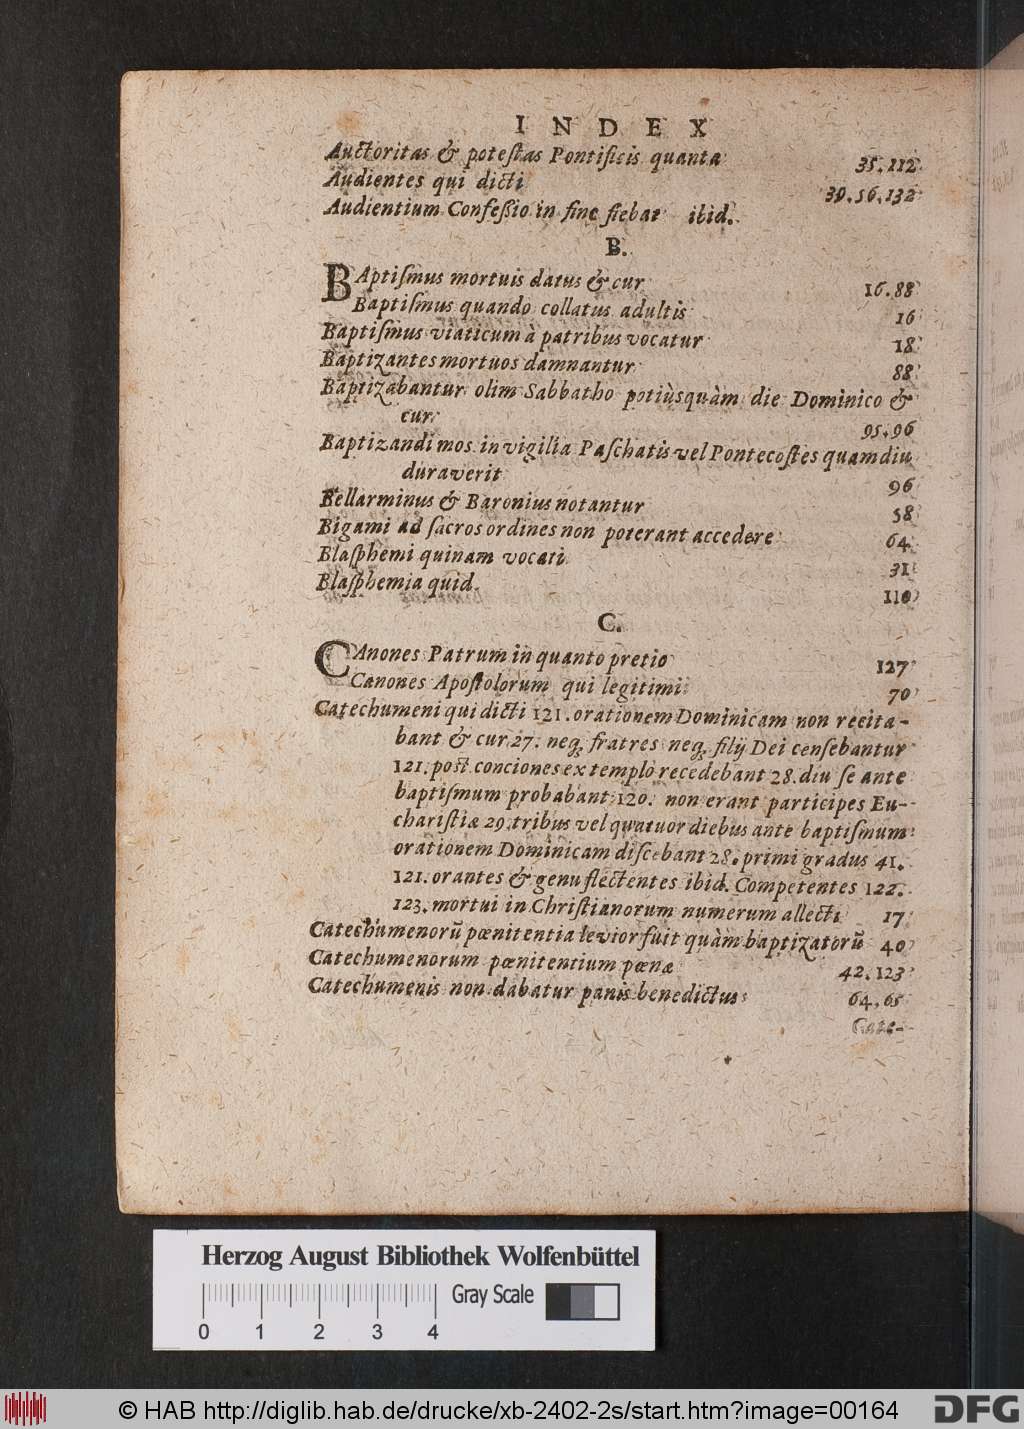 INDEX
Auctoritas & potestas Pontificis quanta 35.112
Audientes qui dicti 39.56.132
Audientium Confeßio in fine fiebat ibid.
B.
BAptiſmus mortuis datus & cur 16.88
Baptiſmus quando collatus adultis 16
Baptiſmus viaticum à patribus vocatur 18
Baptizantes mortuos damnantur 88
Baptizabantur olim Sabbatho potiùsquàm die Dominico &
cur 95.96
Baptizandi mos in vigilia Paſchatis vel Pentecoſtes quamdiu
duraverit 96
Bellarminus & Baronius notantur 58
Bigami ad ſacros ordines non poterant accedere 64
Blaſphemi quinam vocati 31
Blaſphemia quid. 110
C.
CAnones Patrum in quanto pretio 127
Canones Apoſtolorum qui legitimi 70
Catechumeni qui dicti 121. orationem Dominicam non recita-
bant & cur 27. neq; fratres neq; filij Dei cenſebantur
121. poſt conciones extemplò recedebant 28. diu ſe ante
baptiſmum probabant 120. non erant participes Eu-
chariſtiæ 29. tribus vel quatuor diebus ante baptiſmum
orationem Dominicam diſcebant 28. primi gradus 41.
121. orantes & genu flectentes ibid. Competentes 122.
123. mortui in Chriſtianorum numerum allecti 17
Catechumenorũ pœnitentia levior fuit quàm baptizatorũ 40
Catechumenorum pœnitentium pœnæ 42.123
Catechumenis non dabatur panis benedictus 64.65
Cate-
Herzog August Bibliothek Wolfenbüttel
Gray Scale
0 1 2 3 4
© HAB http://diglib.hab.de/drucke/xb-2402-2s/start.htm?image=00164
DFG